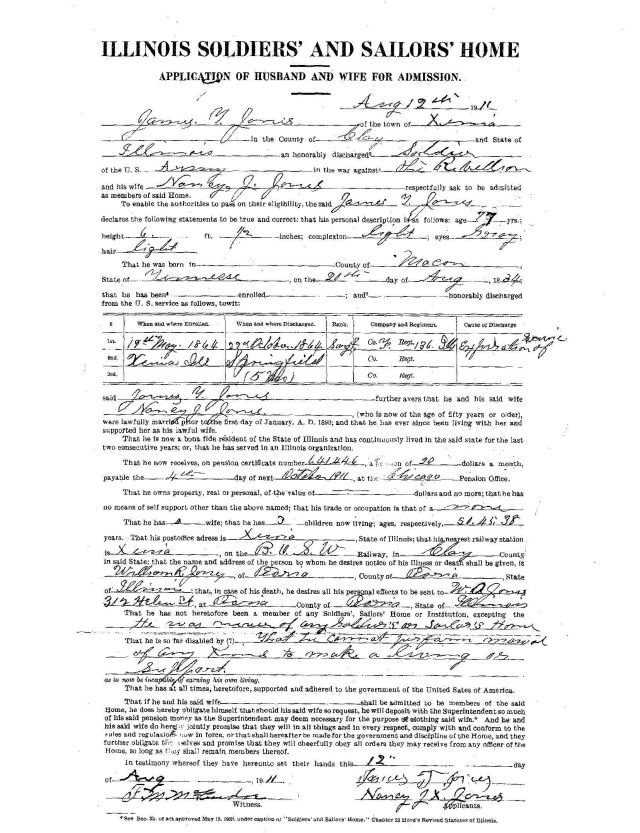 ILLINOIS SOLDIERS' AND SAILORS' HOME
APPLICATION OF HUSBAND AND WIFE FOR ADMISSION.
Aug 12th 1911
James Y Jones of the town of Xenia
in the County of Clay and State of
Illinois an honorably discharged Soldier
of the U. S. Army in the war against the Rebellion
and his wife Nancy J. Jones respectfully ask to be admitted
as members of said Home.
To enable the authorities to pass on their eligibility, the said James Y. Jones
declares the following statements to be true and correct: that his personal description is as follows: age 77 yrs.;
height 6 ft. 1/2 inches; complexion Light; eyes Gray;
hair light
That he was born in County of Macon,
State of Tennessee, on the day of Aug, 1834;
that he has been* enrolled ; and* honorably discharged
from the U. S. service as follows, towit:
When and where Enrolled. When and where Discharged. Rank. Company and Regiment. Cause of Discharge
1st. 19th May 1864 22nd October 1864 Co. Regt. 136. Ill Expiration of Service
2nd. Xenia Ills Springfield Co. Regt.
3rd. (5 Mo) Co. Regt.
said James Y Jones further avers that he and his said wife
Nancy J Jones, (who is now of the age of fifty years or older),
were lawfully married prior to the first day of January, A. D. 1890; and that he has ever since been living with her and
supported her as his lawful wife.
That he is now a bona fide resident of the State of Illinois and has continuously lived in the said state for the last
two consecutive years; or, that he has served in an Illinois organization.
That he now receives, on pension certificate number 641446, a pension of 20 dollars a month,
payable the 4th day of next October 1911, at the Chicago Pension Office.
That he owns property, real or personal, of the value of dollars and no more; that he has
no means of self support other than the above named; that his trade or occupation is that of a none
That he has a wife; that he has 3 children now living; ages, respectively, 51. 45. 38
years. That his postoffice adress is Xenia, State of Illinois; that his nearest railway station
is Xenia, on the B. O. S. W Railway, in Clay County
in said State; that the name and address of the person to whom he desires notice of his illness or death shall be given, is
William R. Jones, of Peoria, County of Peoria, State
of Illinois; that, in case of his death, he desires all his personal effects to be sent to W. R Jones
312 Helen St, at Peoria County of Peoria, State of Illinois
That he has not heretofore been a member of any Soldiers', Sailors' Home or Institution, excepting the
He was never of any Soldiers or Sailors Home
That he is so far disabled by (?) That he cannot perform manual
of any kind to make a living or
Support
as to now be incapable of earning his own living.
That he has at all times, heretofore, supported and adhered to the government of the United Sates of America.
That if he and his said wife shall be admitted to be members of the said
Home, he does hereby obligate himself that should his said wife so request, he will deposit with the Superintendent so much
of his said pension money as the Superintendent may deem necessary for the purpose of clothing said wife.* And he and
his said wife do hereby jointly promise that they will in all things and in every respect, comply with and conform to the
rules and regulations now in force, or that shall hereafter be made for the government and discipline of the Home, and they
further obligate themselves and promise that they will cheerfully obey all orders they may receive from any officer of the
Home, so long as they shall remain members thereof.
In testimony whereof they have hereunto set their hands this 12th day
of Aug, 1911. James Y Jones
Witness. Nancy J. X. Jones Applicants.
*See Sec. 33, of act approved May 15, 1903, under caption of "Soldiers' and Sailors' Home." Chapter 23 Hurd's Revised Statutes of Illinois.